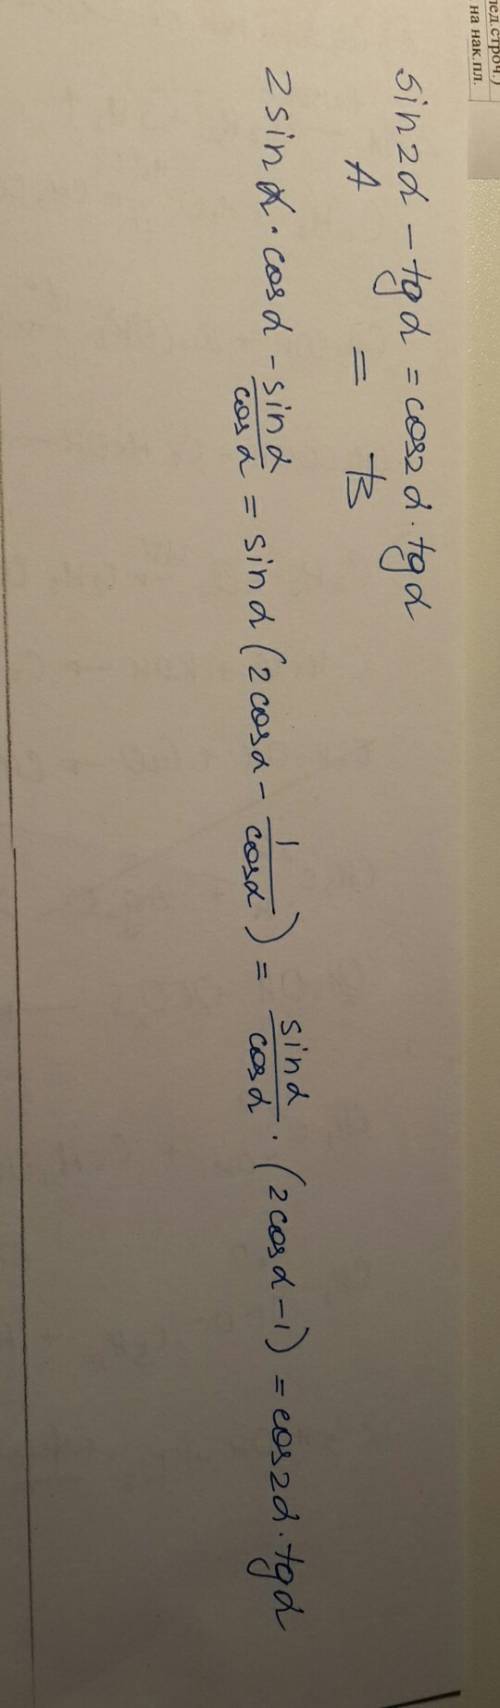 лед.строч.)
на нак.пл.
sin2α − tgα = cos2α · tgα
A = B
2sinα · cosα − sinα/cosα = sinα (2cosα − 1/cosα) = sinα/cosα · (2cosα − 1) = cos2α · tgα